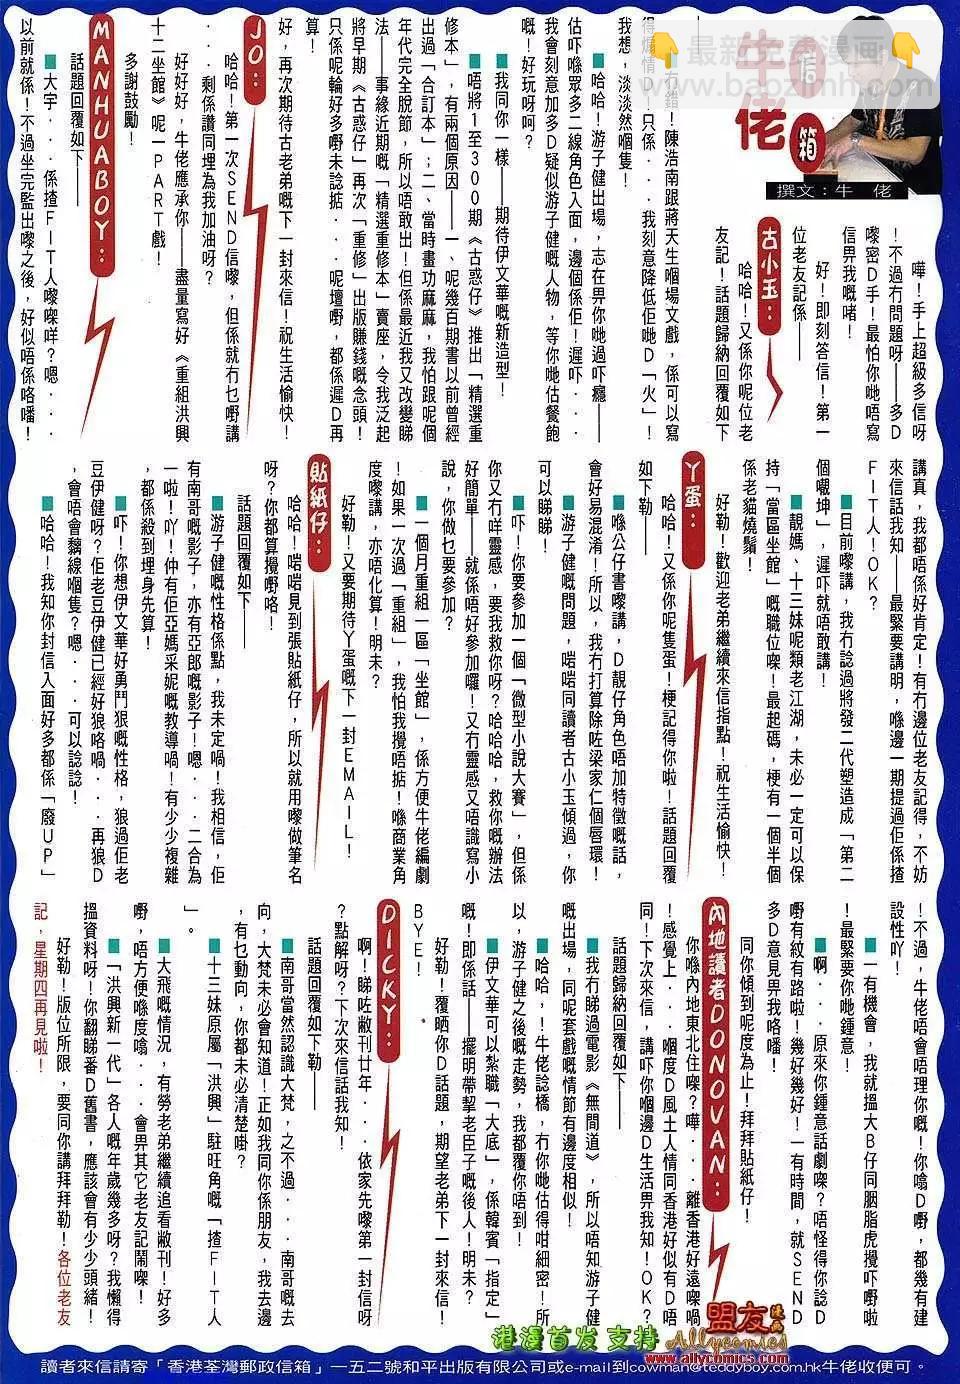 牛佬信箱
撰文：牛佬
嘩！手上超級多信呀
！不過冇問題呀——多D
嚟密D手！最怕你哋唔寫
信畀我嘅啫！
好！即刻答信！第一
位老友記係——
古小玉：
哈哈！又係你呢位老
友記！話題歸納回覆如下
——
冇錯！陳浩南跟蔣天生嗰場文戲，係可以寫
得煽情D！只係．．．我刻意降低佢哋D「火」！
我想，淡淡然嗰隻！
■哈哈！游子健出場，志在畀你哋過吓癮——
估吓喺眾多二線角色入面，邊個係佢！遲吓．．．
我會刻意加多D疑似游子健嘅人物，等你哋估餐飽
嘅！好玩呀呵？
■我同你一樣——期待伊文華嘅新造型！
■唔將1至300期《古惑仔》推出「精選重
修本」，有兩個原因——一、呢幾百期書以前曾經
出過「合訂本」；二、當時畫功麻麻，我怕跟呢個
年代完全脫節，所以唔敢出！但係最近我又改變睇
法——事緣近期嘅「精選重修本」賣座，令我泛起
將早期《古惑仔》再次「重修」出版賺錢嘅念頭！
只係呢輪好多嘢未諗掂．．呢壇嘢，都係遲D再
算！
好，再次期待古老弟嘅下一封來信！祝生活愉快！
JO：
哈哈！第一次SEND信嚟，但係就冇乜嘢講
．．剩係讚同埋為我加油呀？
好好好，牛佬應承你——盡量寫好《重組洪興
十二坐館》呢一PART戲！
多謝鼓勵！
MANHUABOY：
話題回覆如下——
■大宇．．．係揸FIT人嚟㗎咩？嗯．．．
以前就係！不過坐完監出嚟之後，好似唔係咯噃！
講真，我都唔係好肯定！有冇邊位老友記得，不妨
來信話我知——最緊要講明，喺邊一期提過佢係揸
FIT人！OK？
■目前嚟講，我冇諗過將發二代塑造成「第二
個㘓坤」，遲吓就唔敢講！
■靚媽、十三妹呢類老江湖，未必一定可以保
持「當區坐館」嘅職位㗎！最起碼，梗有一個半個
係老貓燒鬚！
好勒！歡迎老弟繼續來信指點！祝生活愉快！
丫蛋：
哈哈！又係你呢隻蛋！梗記得你啦！話題回覆
如下勒——
■喺公仔書嚟講，D靚仔角色唔加特徵嘅話，
會好易混淆！所以，我冇打算除咗梁家仁個唇環！
■游子健嘅問題，啱啱同讀者古小玉傾過，你
可以睇睇！
■吓！你要參加一個「微型小說大賽」，但係
你又冇咩靈感，要我救你呀？哈哈哈，救你嘅辦法
好簡單——就係唔好參加囉！又冇靈感又唔識寫小
說，你做乜要參加？
■一個月重組一區「坐館」，係方便牛佬編劇
！如果一次過「重組」，我怕我攪唔掂！喺商業角
度嚟講，亦唔化算！明未？
好勒！又要期待丫蛋嘅下一封EMAIL！
貼紙仔：
哈哈！啱啱見到張貼紙仔，所以就用嚟做筆名
呀？你都算攪嘢咯！
話題回覆如下——
■游子健的性格係點，我未定喎！我相信，佢
有南哥嘅影子，亦有亞郎嘅影子！嗯．．．二合為
一啦！吖！仲有佢亞媽采妮嘅教導喎！有少少複雜
，都係殺到埋身先算！
■吓！你想伊文華好勇鬥狠嘅性格，狼過佢老
豆伊健呀？佢老豆伊健已經好狼咯喎．．再狼D
，會唔會黐線嗰隻？嗯．．．可以諗諗！
■哈哈！我知你封信入面好多都係「廢UP」
！不過，牛佬唔會唔理你嘅！你噏D嘢，都幾有建
設性吖！
■一有機會，我就搵大B仔同胭脂虎攪吓嘢啦
！最緊要你哋鍾意！
■啊．．．原來你鍾意話劇㗎？唔怪得你諗D
嘢有紋有路啦！幾好幾好！一有時間，就SEND
多D意見畀我咯噃！
同你傾到呢度為止！拜拜貼紙仔！
內地讀者DONOVAN：
你喺內地東北住㗎？嘩．．離香港好遠㗎喎
！感覺上．．．嗰度D風土人情同香港好似有D唔
同！下次來信，講吓你嗰邊D生活畀我知！OK？
話題歸納回覆如下——
■我冇睇過電影《無間道》，所以唔知游子健
嘅出場，同呢套戲嘅情節有邊度相似！
■哈哈，！牛佬諗橋，冇你哋估得咁細密！所
以，游子健之後嘅走勢，我都覆你唔到！
■伊文華可以紮職「大底」，係韓賓「指定」
嘅！即係話——擺明帶挈老臣子嘅後人！明未？
好勒！覆晒你D話題，期望老弟下一封來信！
BYE！
DICKY：
啊！睇咗敝刊廿年．．．依家先嚟第一封信呀
？點解呀？下次來信話我知！
話題回覆如下勒——
■南哥當然認識大梵，之不過．．．南哥嘅去
向，大梵未必會知道！正如我同你係朋友，我去邊
，有乜動向，你都未必清楚啩？
■十三妹原屬「洪興」駐旺角嘅「揸FIT人
」。
■大飛嘅情況，有勞老弟繼續追看敝刊！好多
嘢，唔方便喺度噏．．．會畀其它老友記鬧㗎！
■「洪興新一代」各人嘅年歲幾多呀？我懶得
搵資料呀！你翻睇番D舊書，應該會有少少頭緒！
好勒！版位所限，要同你講拜拜勒！各位老友
記，星期四再見啦！
港漫首发 支持 盟友漫画 Allycomics
www.allycomics.com
讀者來信請寄「香港荃灣郵政信箱」一五二號和平出版有限公司或e-mail到cowman@teddyboy.com.hk牛佬收便可。
最新免費漫画
baozimh.com